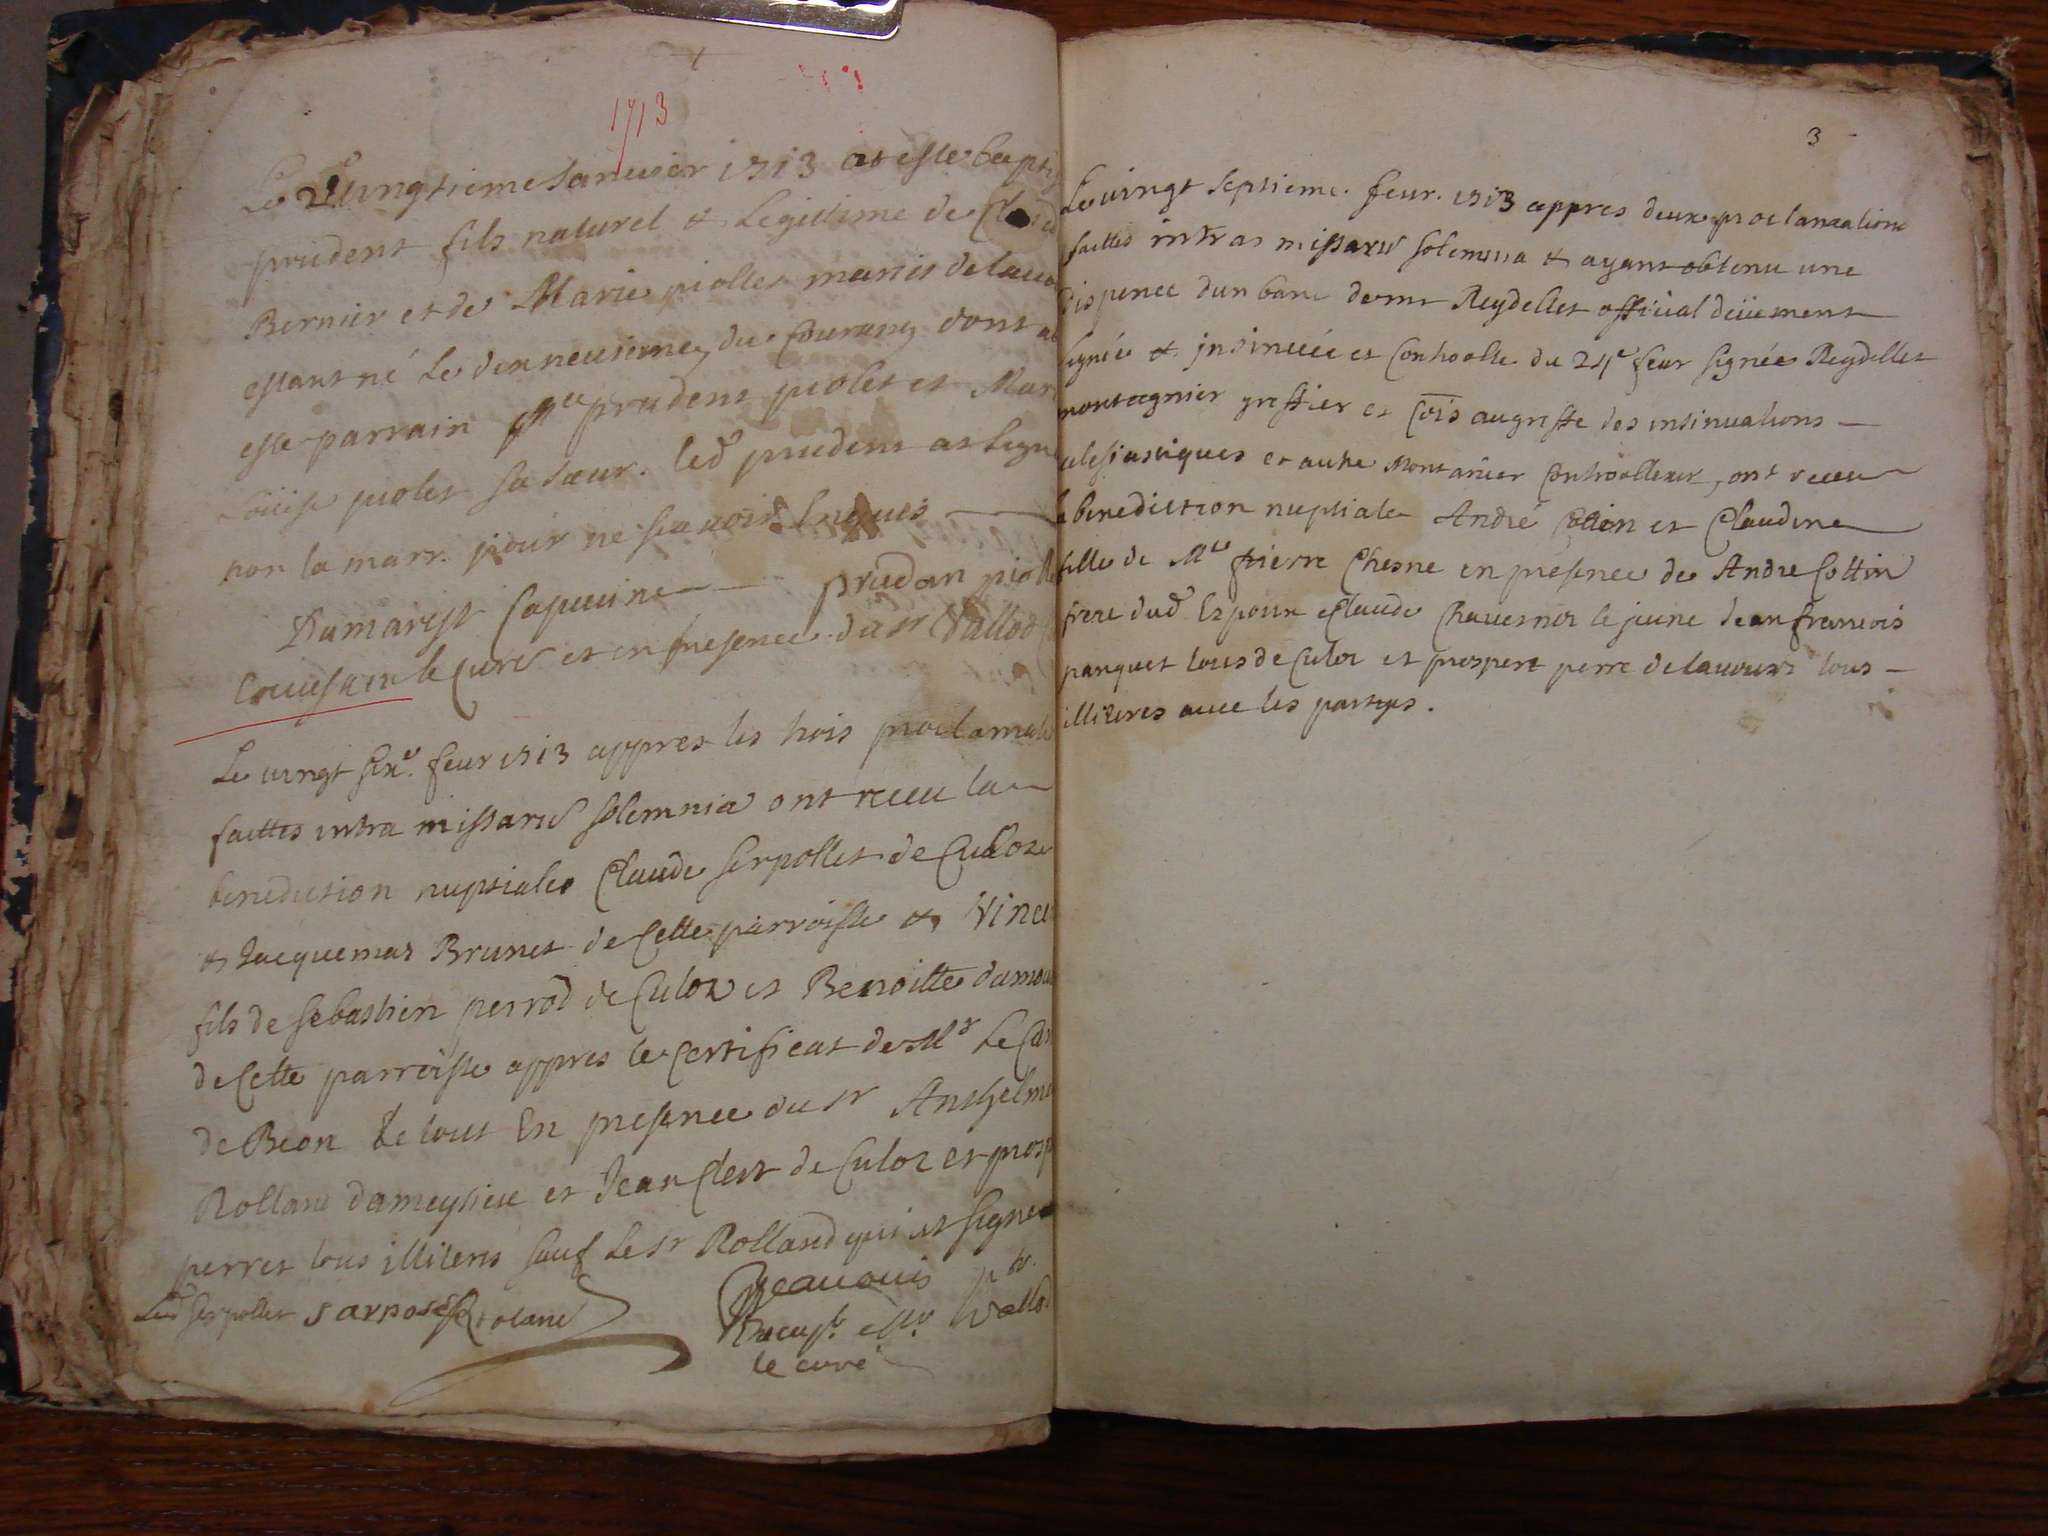 1713
Le Vingtieme Januier 1713 at esté bapti
prudent fils naturel & Legittime de
Bernier et de Marie piollet mariés de lauo
estant né le dixneuuieme du Courant dont at
esté parrain prudent piolet et Mar
Loüise piolet sa soeur. led prudent at signé
non la marr. pour ne scauoir
Dumarest Capucine prudan pioll
Couessien le Curé et en presence du sr Vallod
Le uingt six.e feur 1713 appres les trois proclamat
faittes intra missarũ solemnia ont receu la
benediction nuptiale Claude serpollet de Culoz
& Jacquemaz Brunet de Cette parroisse & Vince
fils de sebastien perrod de Culoz et Benoitte damou
de Cette parroisse appres le Certificat de Mr Le Cur
de Béon Le tout En presence du sr Anthelme
Rolland dameysieu et Jean Clert de Culoz et prosp
perret tous illiteres sauf Le sr Rolland qui at signé
Led serpollet Roland
le curé
3
Le uingt septieme. feur. 1713 appres deux proclamations
faittes intra missarũ solemnia & ayant obtenu une
dispence dun banc de mr Reydellet official düement
signée & insinuée et Controolle du 24e feur signée Reydellet
montagnier greffier et Cois au greffe des insinuations
eclesiastiques et autre Montanier Controolleur, ont receu
la benediction nuptiale André Cottin et Claudine
fille de Me pierre Chesne en presence de Andre Cottin
frere dud Espoux Claude Chauesnoz le jeune Jean francois
panquet tous de Culoz et prospert perre de lauours tous
illiteres auec les partyes.